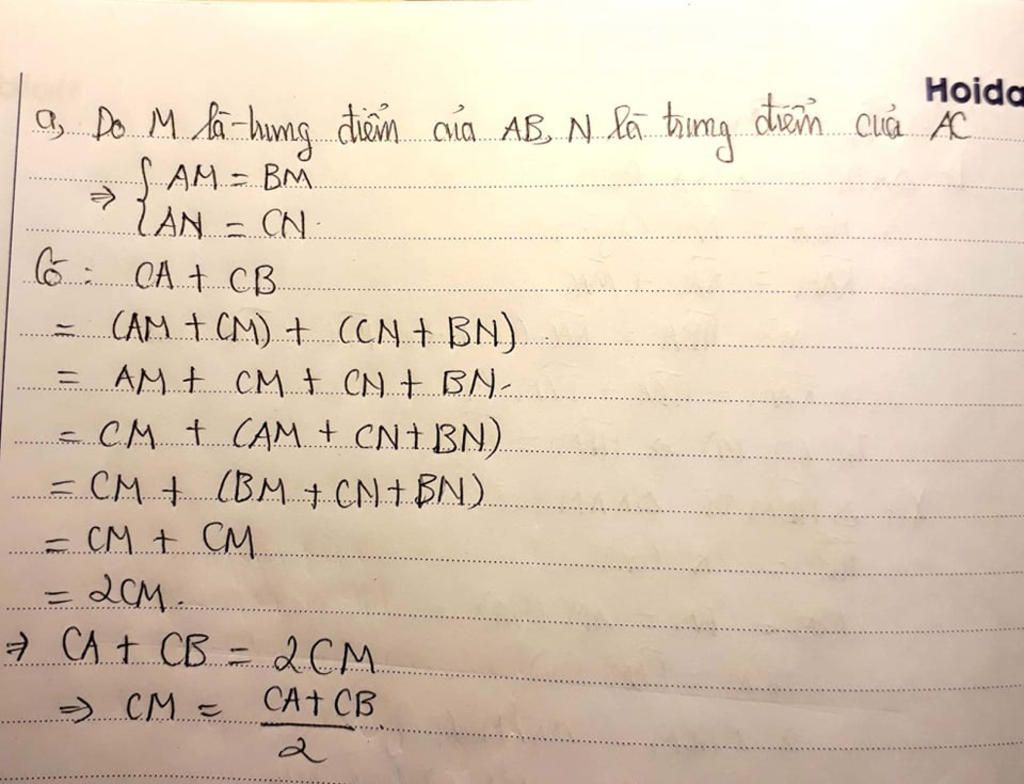 Hoida
a, Do M là trung điểm của AB, N là trung điểm của AC
⇒ { AM = BM
AN = CN.
Có: CA + CB
= (AM + CM) + (CN + BN)
= AM + CM + CN + BN.
= CM + (AM + CN + BN)
= CM + (BM + CN + BN)
= CM + CM
= 2CM.
⇒ CA + CB = 2CM
⇒ CM = CA + CB
2